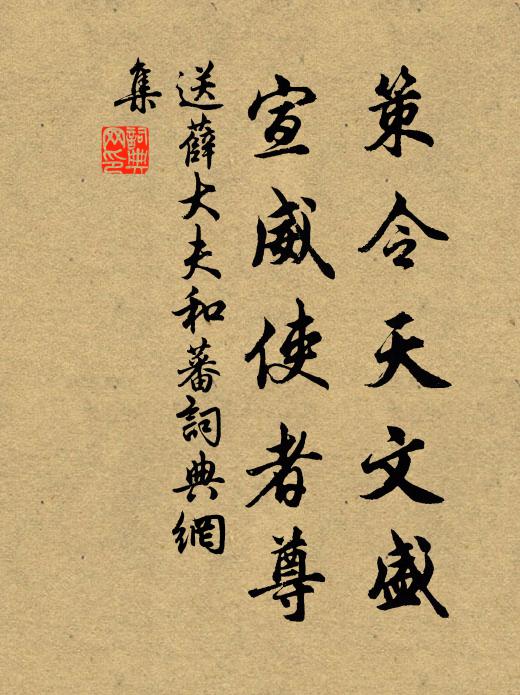 策令天文盛
宣威使者尊
送薛大夫和蕃詞典網
集
詞典
网印